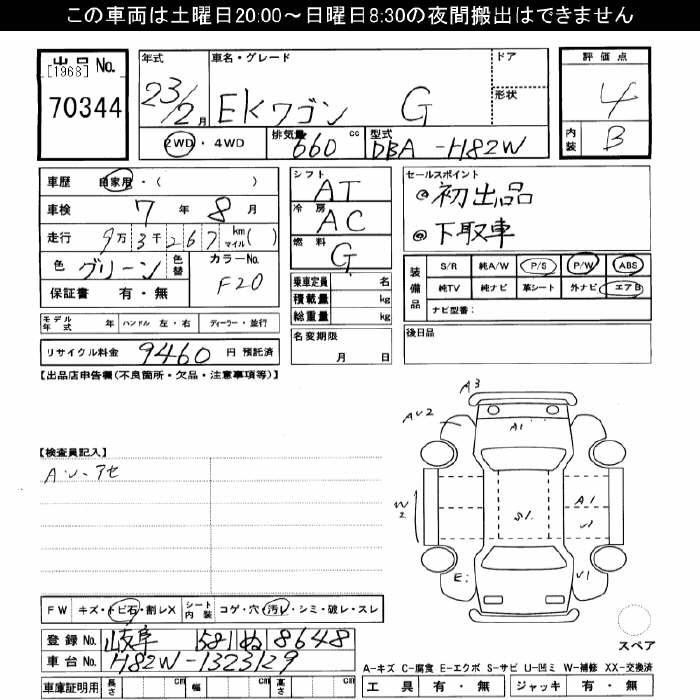 この車両は土曜日20:00～日曜日8:30の夜間搬出はできません
出品 No.
[1968]
70344
年式 23/2月
車名・グレード EKワゴン G
ドア
形状
2WD・4WD
排気量 660 cc
型式 DBA-H82W
評価点 4
内装 B
車歴 自家用・( )
車検 7年 8月
走行 9万3千267 km マイル( )
色 グリーン 色替 カラーNo. F20
保証書 有・無
シフト AT
冷房 AC
燃料 G
乗車定員 名
積載量 kg
総重量 kg
名変期限 月 日
セールスポイント
初出品
下取車
装備品
S/R 純A/W P/S P/W ABS
純TV 純ナビ 革シート 外ナビ エアB
ナビ型番:
後日品
モデル年式 年 ハンドル 左・右 ディーラー・並行
リサイクル料金 9460 円 預託済
【出品店申告欄(不良箇所・欠品・注意事項等)】
【検査員記入】
A3
AU2
A1
W2
S1
A1
E
V1
FW キズ・トビ石・割レX シート内装 コゲ・穴・汚レ・シミ・破レ・スレ
登録No. 岐阜 581 ぬ 8648
車台No. H82W-1323129
車庫証明用 長さ cm 幅 cm 高さ cm
スペア
A-キズ C-腐食 E-エクボ S-サビ U-凹ミ W-補修 XX-交換済
工具 有・無 ジャッキ 有・無